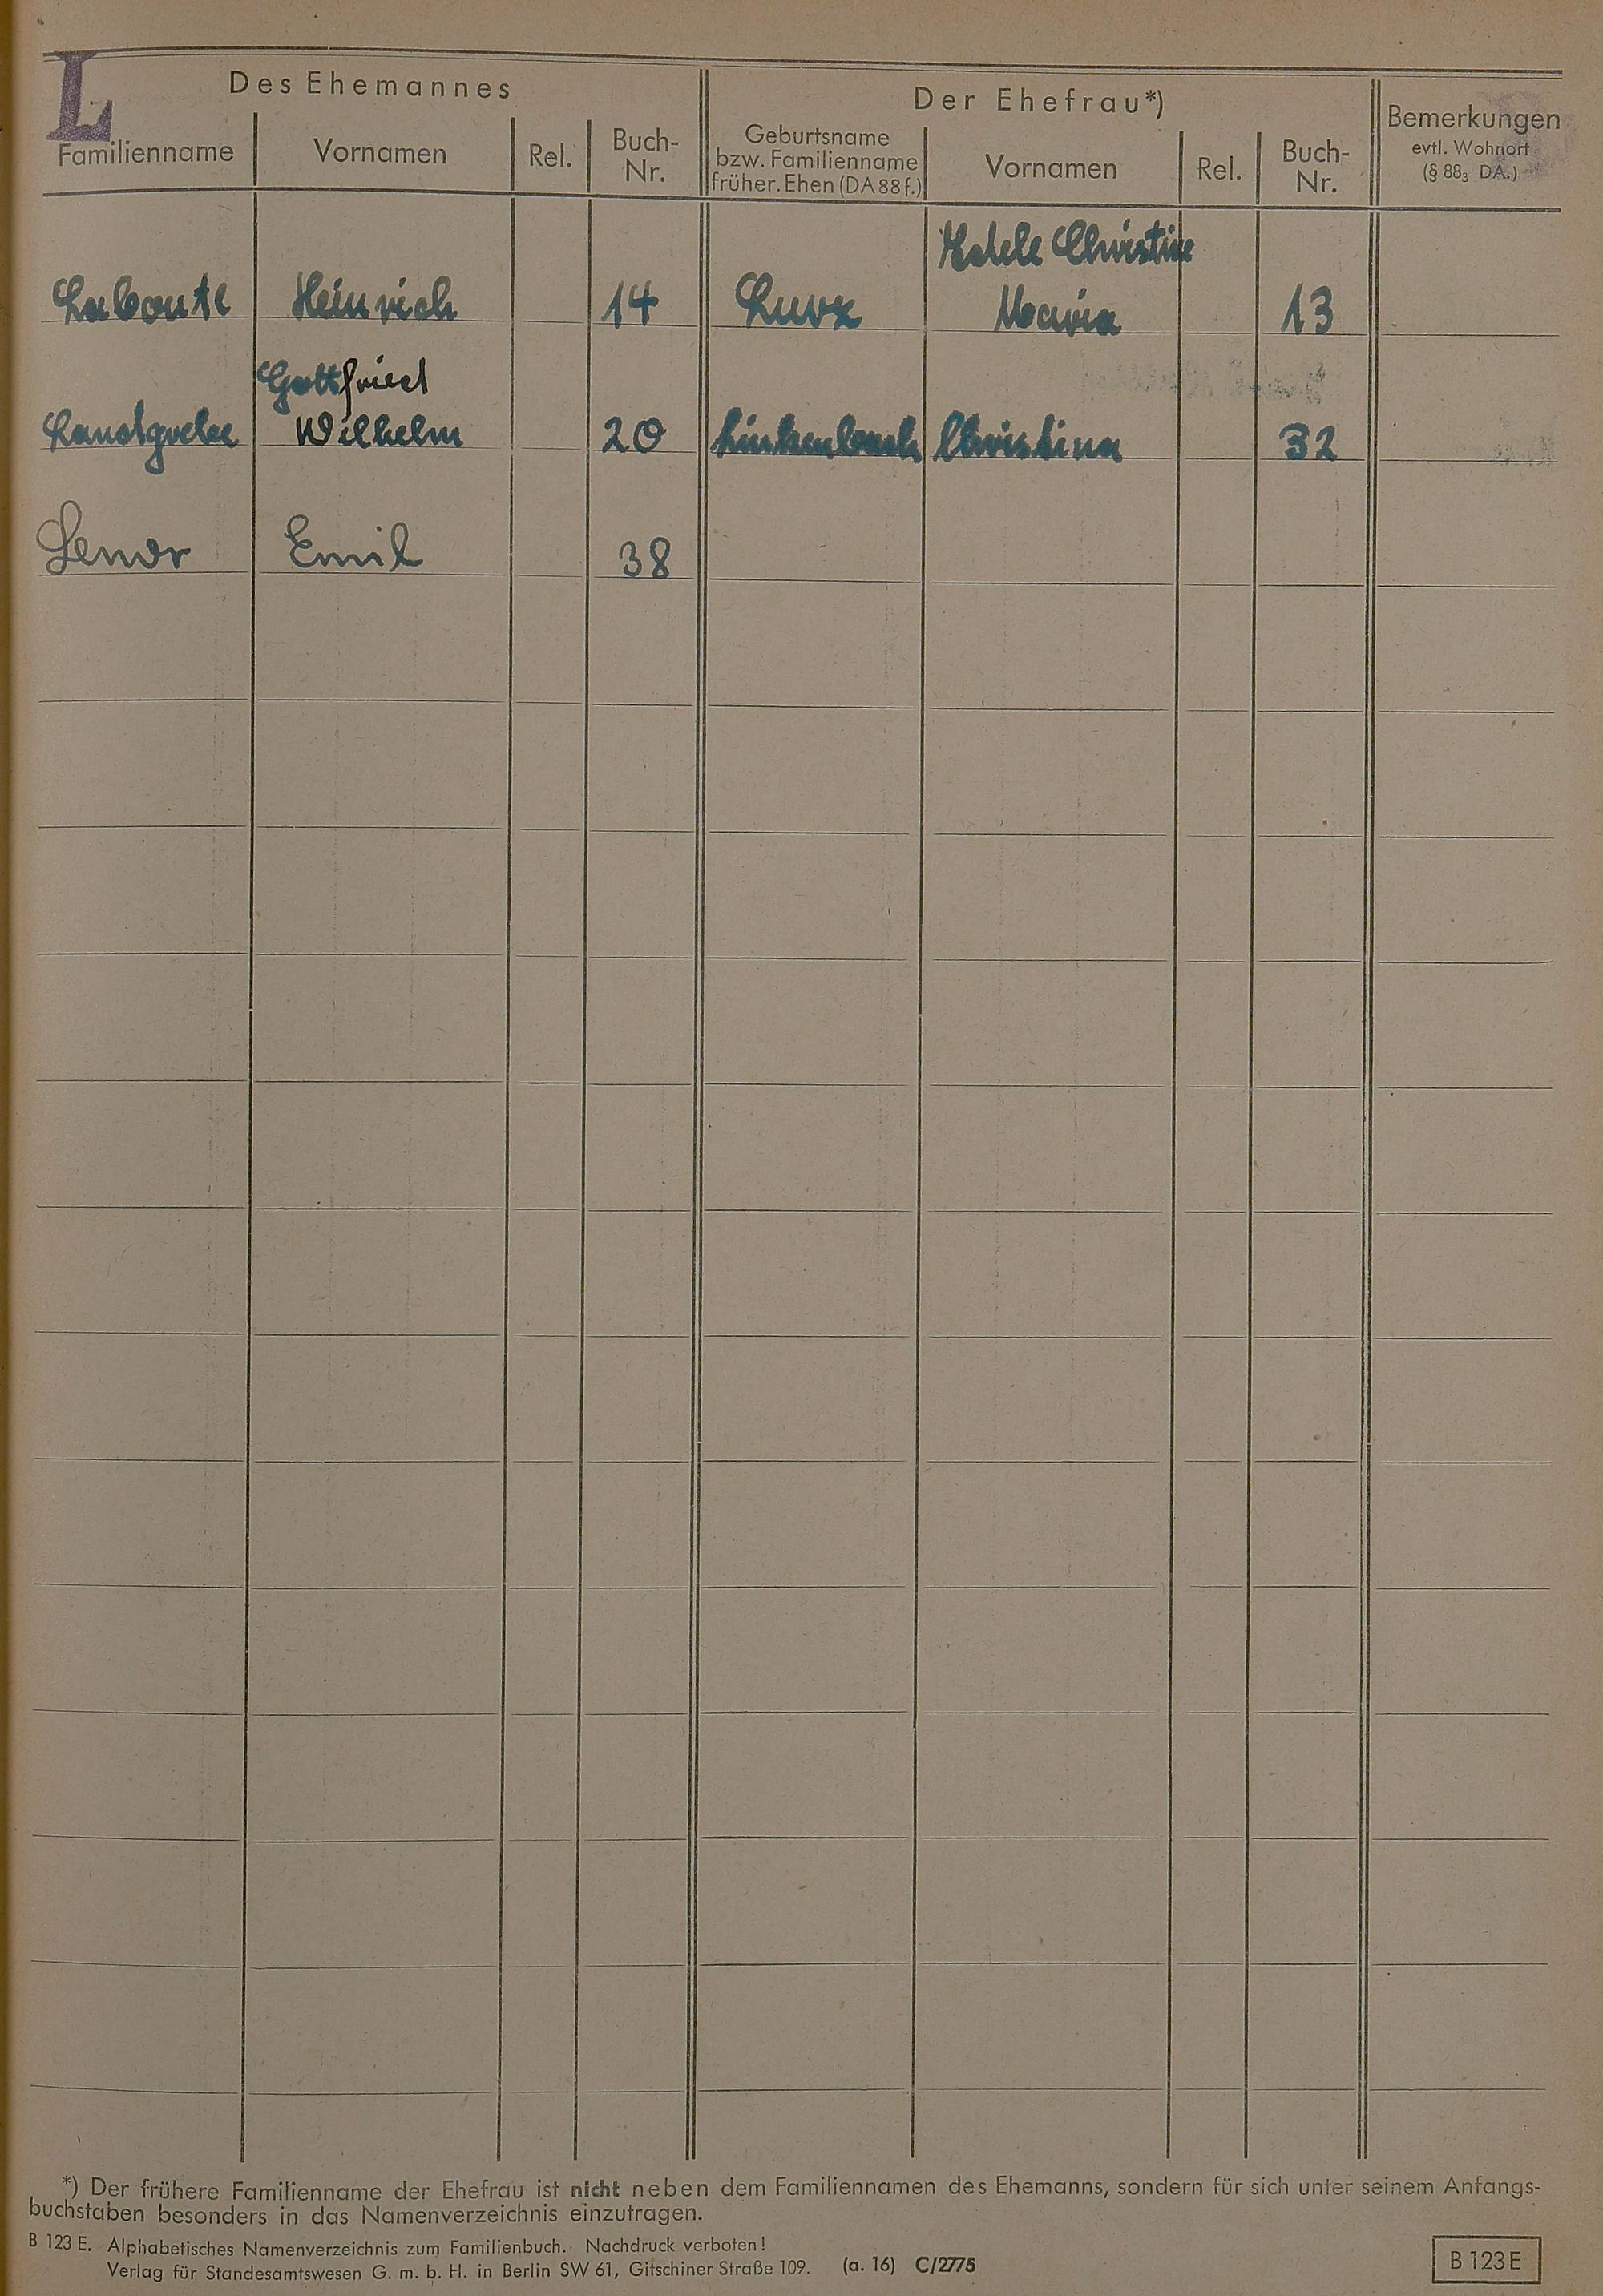 L
Des Ehemannes
Der Ehefrau*)
Bemerkungen
evtl. Wohnort
(§ 88₃ DA.)
Familienname
Vornamen
Rel.
Buch-
Nr.
Geburtsname
bzw. Familienname
früher. Ehen (DA 88 f.)
Vornamen
Rel.
Buch-
Nr.
Christine
Labonte Heinrich 14 Lurz Maria 13
Gottfried
Landgrebe Wilhelm 20 Linkenbach Christina 32
Emil 38
*) Der frühere Familienname der Ehefrau ist nicht neben dem Familiennamen des Ehemanns, sondern für sich unter seinem Anfangs-
buchstaben besonders in das Namenverzeichnis einzutragen.
B 123 E. Alphabetisches Namenverzeichnis zum Familienbuch. Nachdruck verboten!
Verlag für Standesamtswesen G. m. b. H. in Berlin SW 61, Gitschiner Straße 109. (a. 16) C/2775
B 123 E